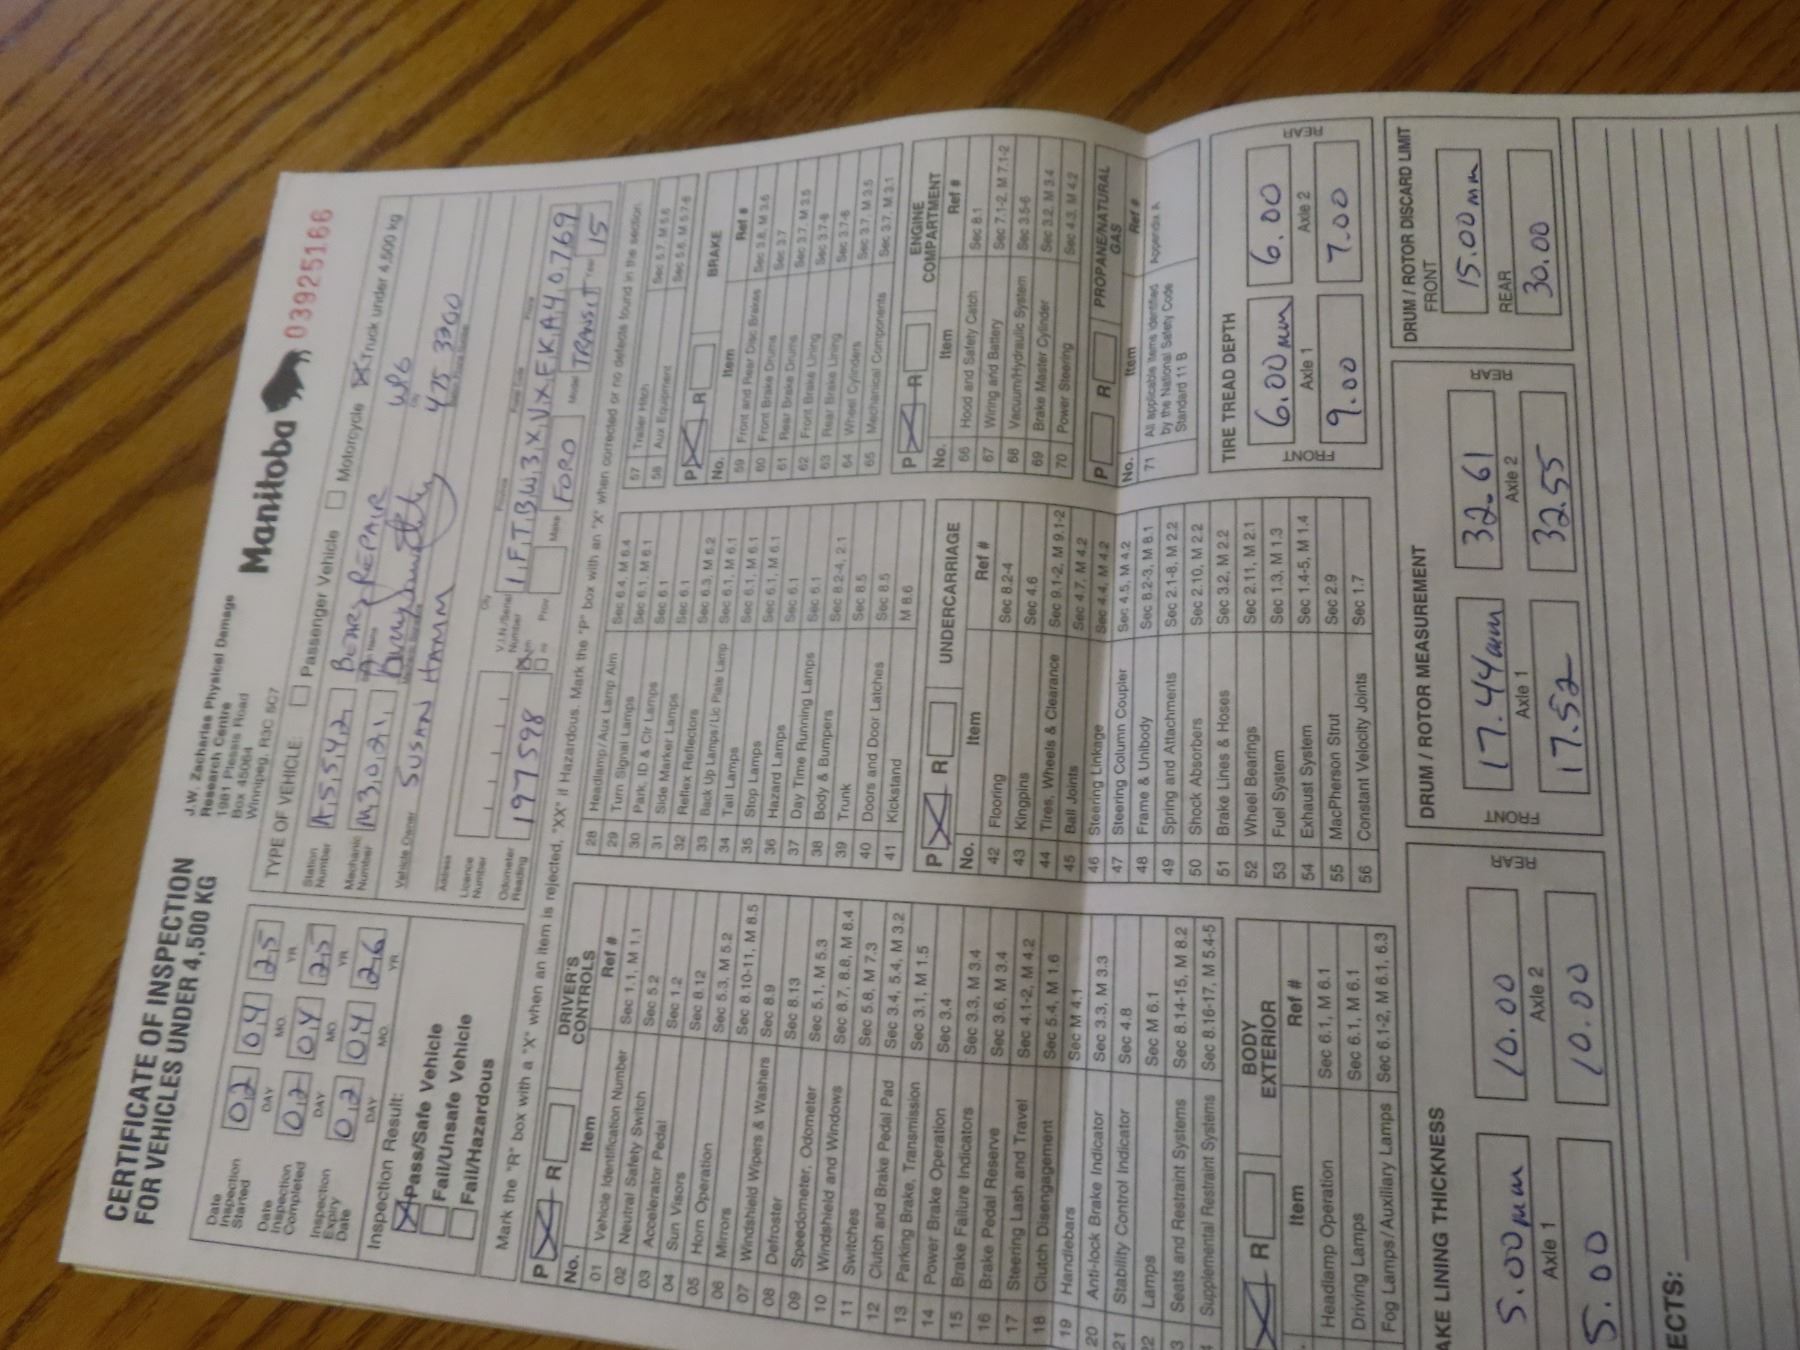 CERTIFICATE OF INSPECTION
FOR VEHICLES UNDER 4,500 KG
J.W. Zacharias Physical Damage
Research Centre
1981 Plessis Road
Box 45064
Winnipeg, R3C 5C7
Manitoba
03925166
Date Inspection Started 02 04 25
DAY MO. YR
Date Inspection Completed 02 04 25
DAY MO. YR
Inspection Expiry Date 02 04 26
DAY MO. YR
Inspection Result:
X Pass/Safe Vehicle
Fail/Unsafe Vehicle
Fail/Hazardous
TYPE OF VEHICLE: Passenger Vehicle Motorcycle X Truck under 4,500 kg
Station Number A5542 REPAIR WPG
Mechanic Number M3021 475 3200
Vehicle Owner SUSAN HAMM
Address City Province Postal Code Phone
Licence Number V.I.N./Serial Number 1FTBW3XVXEKA40769
Odometer Reading 197598 X km mi Prov Make FORD Model TRANSIT Year 15
Mark the "R" box with a "X" when an item is rejected, "XX" if Hazardous. Mark the "P" box with an "X" when corrected or no defects found in the section.
P X R DRIVER'S CONTROLS
No. Item Ref #
01 Vehicle Identification Number Sec 1.1, M 1.1
02 Neutral Safety Switch Sec 5.2
03 Accelerator Pedal Sec 1.2
04 Sun Visors Sec 8.12
05 Horn Operation Sec 5.3, M 5.2
06 Mirrors Sec 8.10-11, M 8.5
07 Windshield Wipers & Washers Sec 8.9
08 Defroster Sec 8.13
09 Speedometer, Odometer Sec 5.1, M 5.3
10 Windshield and Windows Sec 8.7, 8.8, M 8.4
11 Switches Sec 5.8, M 7.3
12 Clutch and Brake Pedal Pad Sec 3.4, 5.4, M 3.2
13 Parking Brake, Transmission Sec 3.1, M 1.5
14 Power Brake Operation Sec 3.4
15 Brake Failure Indicators Sec 3.3, M 3.4
16 Brake Pedal Reserve Sec 3.6, M 3.4
17 Steering Lash and Travel Sec 4.1-2, M 4.2
18 Clutch Disengagement Sec 5.4, M 1.6
19 Handlebars Sec M 4.1
20 Anti-lock Brake Indicator Sec 3.3, M 3.3
21 Stability Control Indicator Sec 4.8
22 Lamps Sec M 6.1
3 Seats and Restraint Systems Sec 8.14-15, M 8.2
4 Supplemental Restraint Systems Sec 8.16-17, M 5.4-5
X R BODY EXTERIOR
Item Ref #
Headlamp Operation Sec 6.1, M 6.1
Driving Lamps Sec 6.1, M 6.1
Fog Lamps/Auxiliary Lamps Sec 6.1-2, M 6.1, 6.3
28 Headlamp/Aux Lamp Aim Sec 6.4, M 6.4
29 Turn Signal Lamps Sec 6.1, M 6.1
30 Park, ID & Clr Lamps Sec 6.1
31 Side Marker Lamps Sec 6.1
32 Reflex Reflectors Sec 6.3, M 6.2
33 Back Up Lamps/Lic Plate Lamp Sec 6.1, M 6.1
34 Tail Lamps Sec 6.1, M 6.1
35 Stop Lamps Sec 6.1, M 6.1
36 Hazard Lamps Sec 6.1
37 Day Time Running Lamps Sec 6.1
38 Body & Bumpers Sec 8.2-4, 2.1
39 Trunk Sec 8.5
40 Doors and Door Latches Sec 8.5
41 Kickstand M 8.6
P X R UNDERCARRIAGE
No. Item Ref #
42 Flooring Sec 8.2-4
43 Kingpins Sec 4.6
44 Tires, Wheels & Clearance Sec 9.1-2, M 9.1-2
45 Ball Joints Sec 4.7, M 4.2
46 Steering Linkage Sec 4.4, M 4.2
47 Steering Column Coupler Sec 4.5, M 4.2
48 Frame & Unibody Sec 8.2-3, M 8.1
49 Spring and Attachments Sec 2.1-8, M 2.2
50 Shock Absorbers Sec 2.10, M 2.2
51 Brake Lines & Hoses Sec 3.2, M 2.2
52 Wheel Bearings Sec 2.11, M 2.1
53 Fuel System Sec 1.3, M 1.3
54 Exhaust System Sec 1.4-5, M 1.4
55 MacPherson Strut Sec 2.9
56 Constant Velocity Joints Sec 1.7
57 Trailer Hitch Sec 5.7, M 5.6
58 Aux Equipment Sec 5.6, M 5.7-8
P X R BRAKE
No. Item Ref #
59 Front and Rear Disc Brakes Sec 3.8, M 3.6
60 Front Brake Drums Sec 3.7
61 Rear Brake Drums Sec 3.7, M 3.5
62 Front Brake Lining Sec 3.7-8
63 Rear Brake Lining Sec 3.7-8
64 Wheel Cylinders Sec 3.7, M 3.5
65 Mechanical Components Sec 3.7, M 3.1
P X R ENGINE COMPARTMENT
No. Item Ref #
66 Hood and Safety Catch Sec 8.1
67 Wiring and Battery Sec 7.1-2, M 7.1-2
68 Vacuum/Hydraulic System Sec 3.5-6
69 Brake Master Cylinder Sec 3.2, M 3.4
70 Power Steering Sec 4.3, M 4.2
P R PROPANE/NATURAL GAS
No. Item Ref #
71 All applicable items identified by the National Safety Code Standard 11 B Appendix A
TIRE TREAD DEPTH
FRONT 6.00mm 6.00 REAR
Axle 1 Axle 2
9.00 7.00
AKE LINING THICKNESS
5.00mm 10.00 REAR
Axle 1 Axle 2
5.00 10.00
DRUM / ROTOR MEASUREMENT
FRONT 17.44mm 32.61 REAR
Axle 1 Axle 2
17.52 32.55
DRUM / ROTOR DISCARD LIMIT
FRONT
15.00mm
REAR
30.00
ECTS: